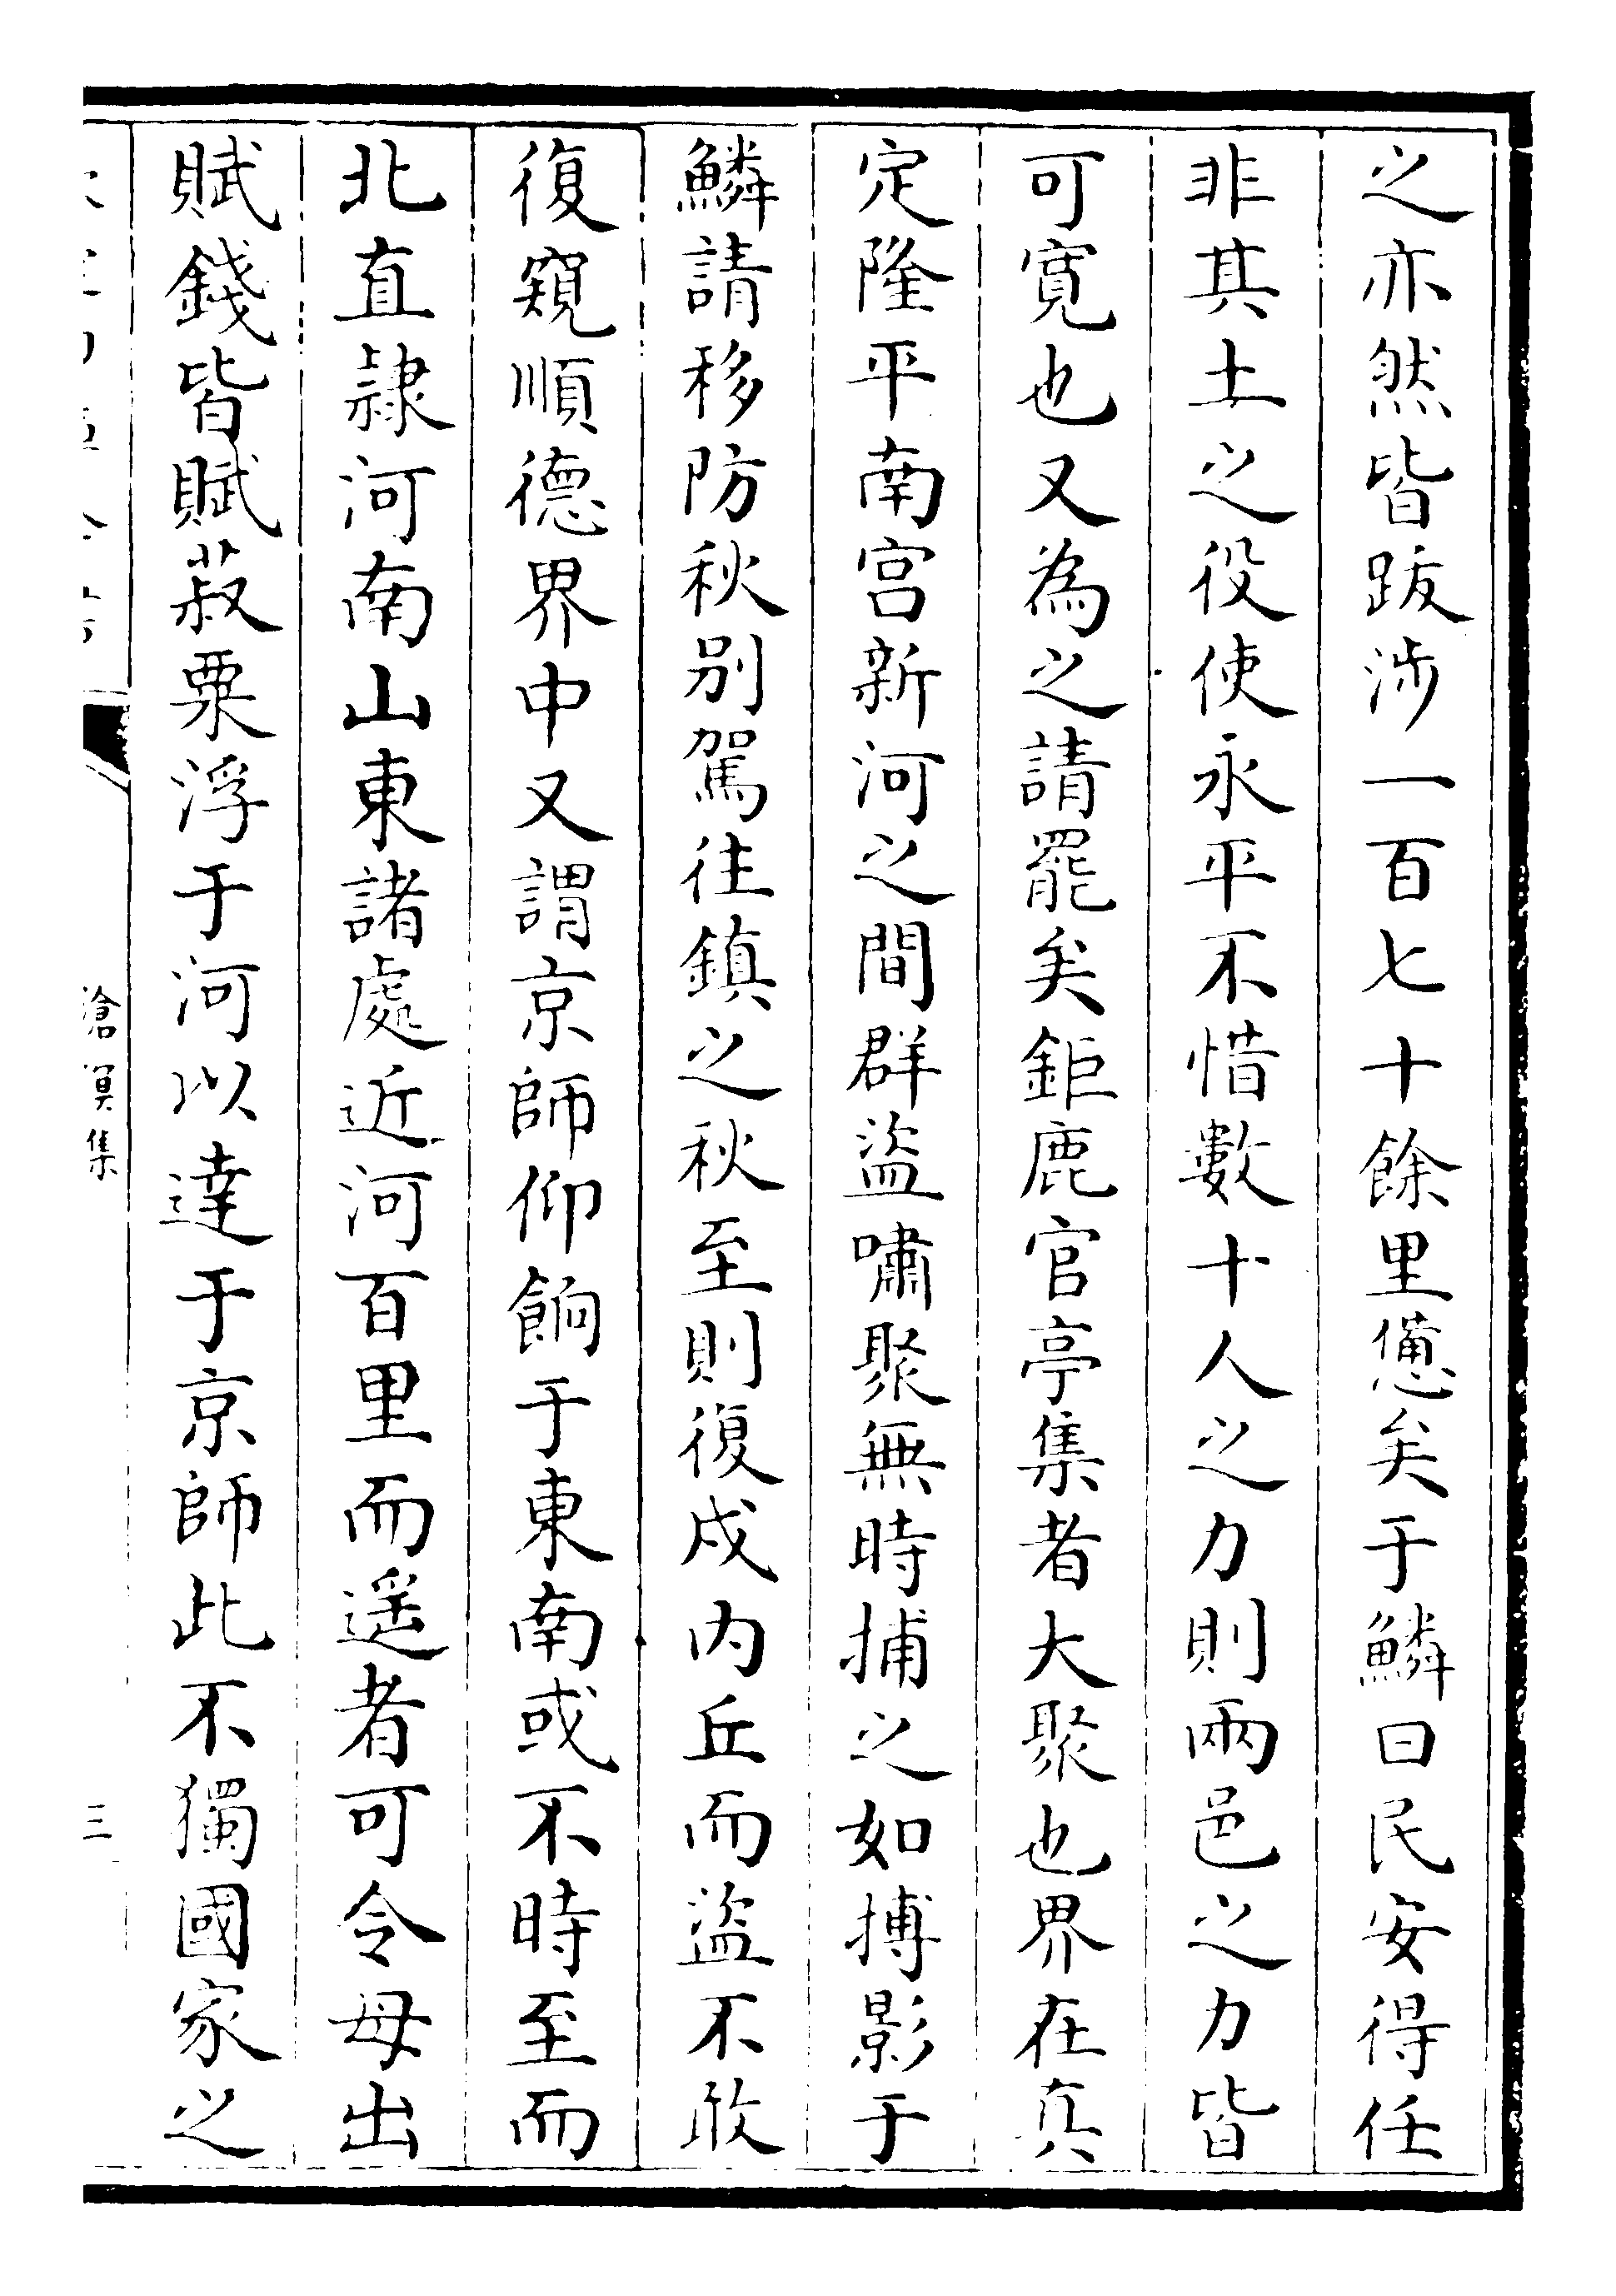 之亦然皆跋涉一百七十餘里憊矣于鱗曰民安得任
非其土之役使永平不惜數十人之力則兩邑之力皆
可寛也又為之請罷矣鉅鹿官亭集者大聚也界在真
定隆平南宫新河之間群盜嘯聚無時捕之如搏影于
鱗請移防秋别駕往鎮之秋至則復戍内丘而盜不敢
復窺順德界中又謂京師仰餉于東南或不時至而
北直隸河南山東諸處近河百里而遥者可令毋出
賦錢皆賦菽粟浮于河以達于京師此不獨國家之
滄溟集
三